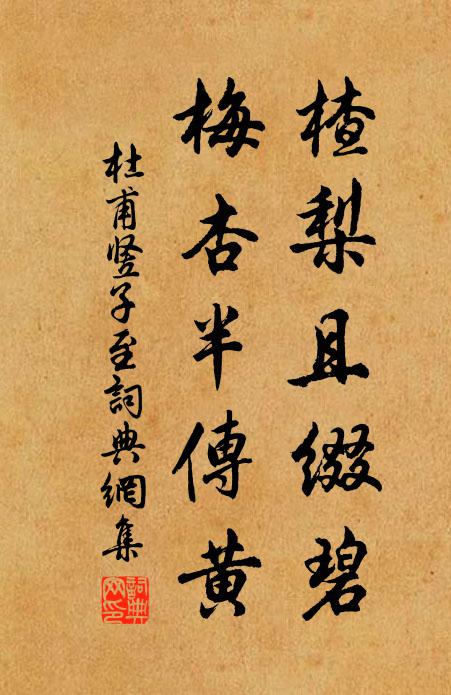 楂梨且綴碧
梅杏半傳黃
杜甫豎子至詞典網集
詞典網印